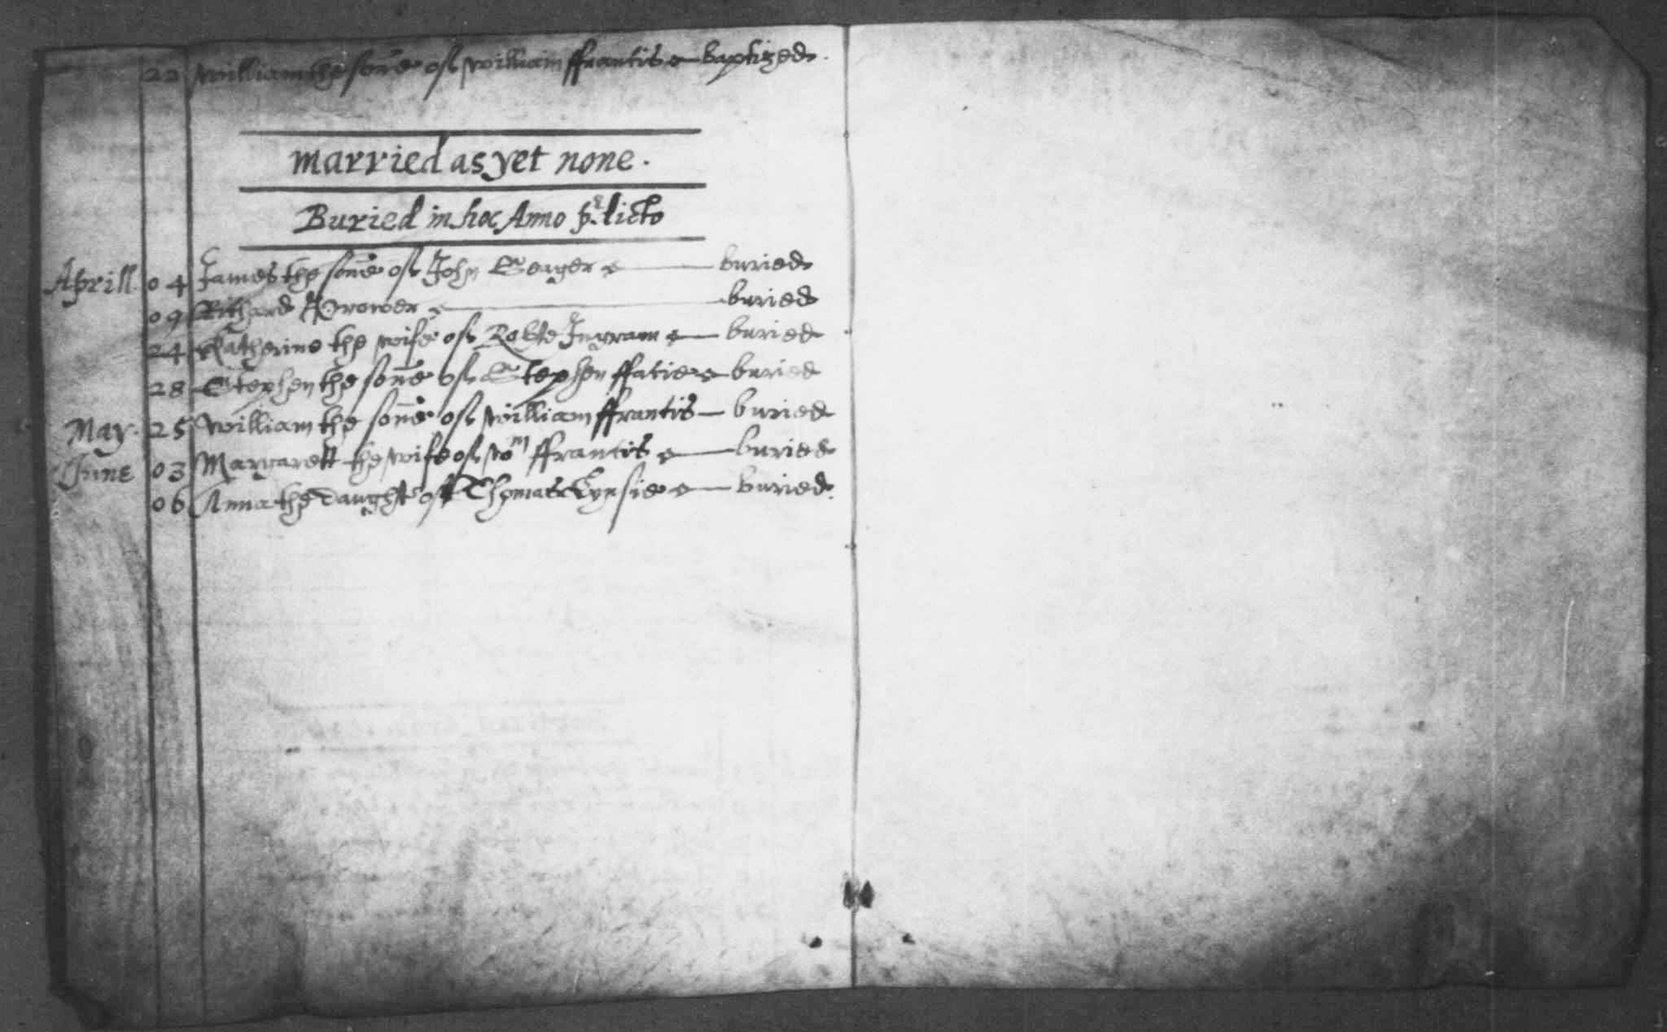 22 William the sonne of William ffrancis baptized.
married as yet none.
Buried in hoc Anno p.dicto
Aprill. 04 James the sonne of John Geager buried
09 Richard buried
24 Katherine the wife of Robte Ingram buried
28 Stephen the sonne of Stephen ffacie buried
May. 25 William the sonne of William ffrancis buried
June 03 Margarett the wife of Wm ffrancis buried
06 Anna the daught of Thomas buried.